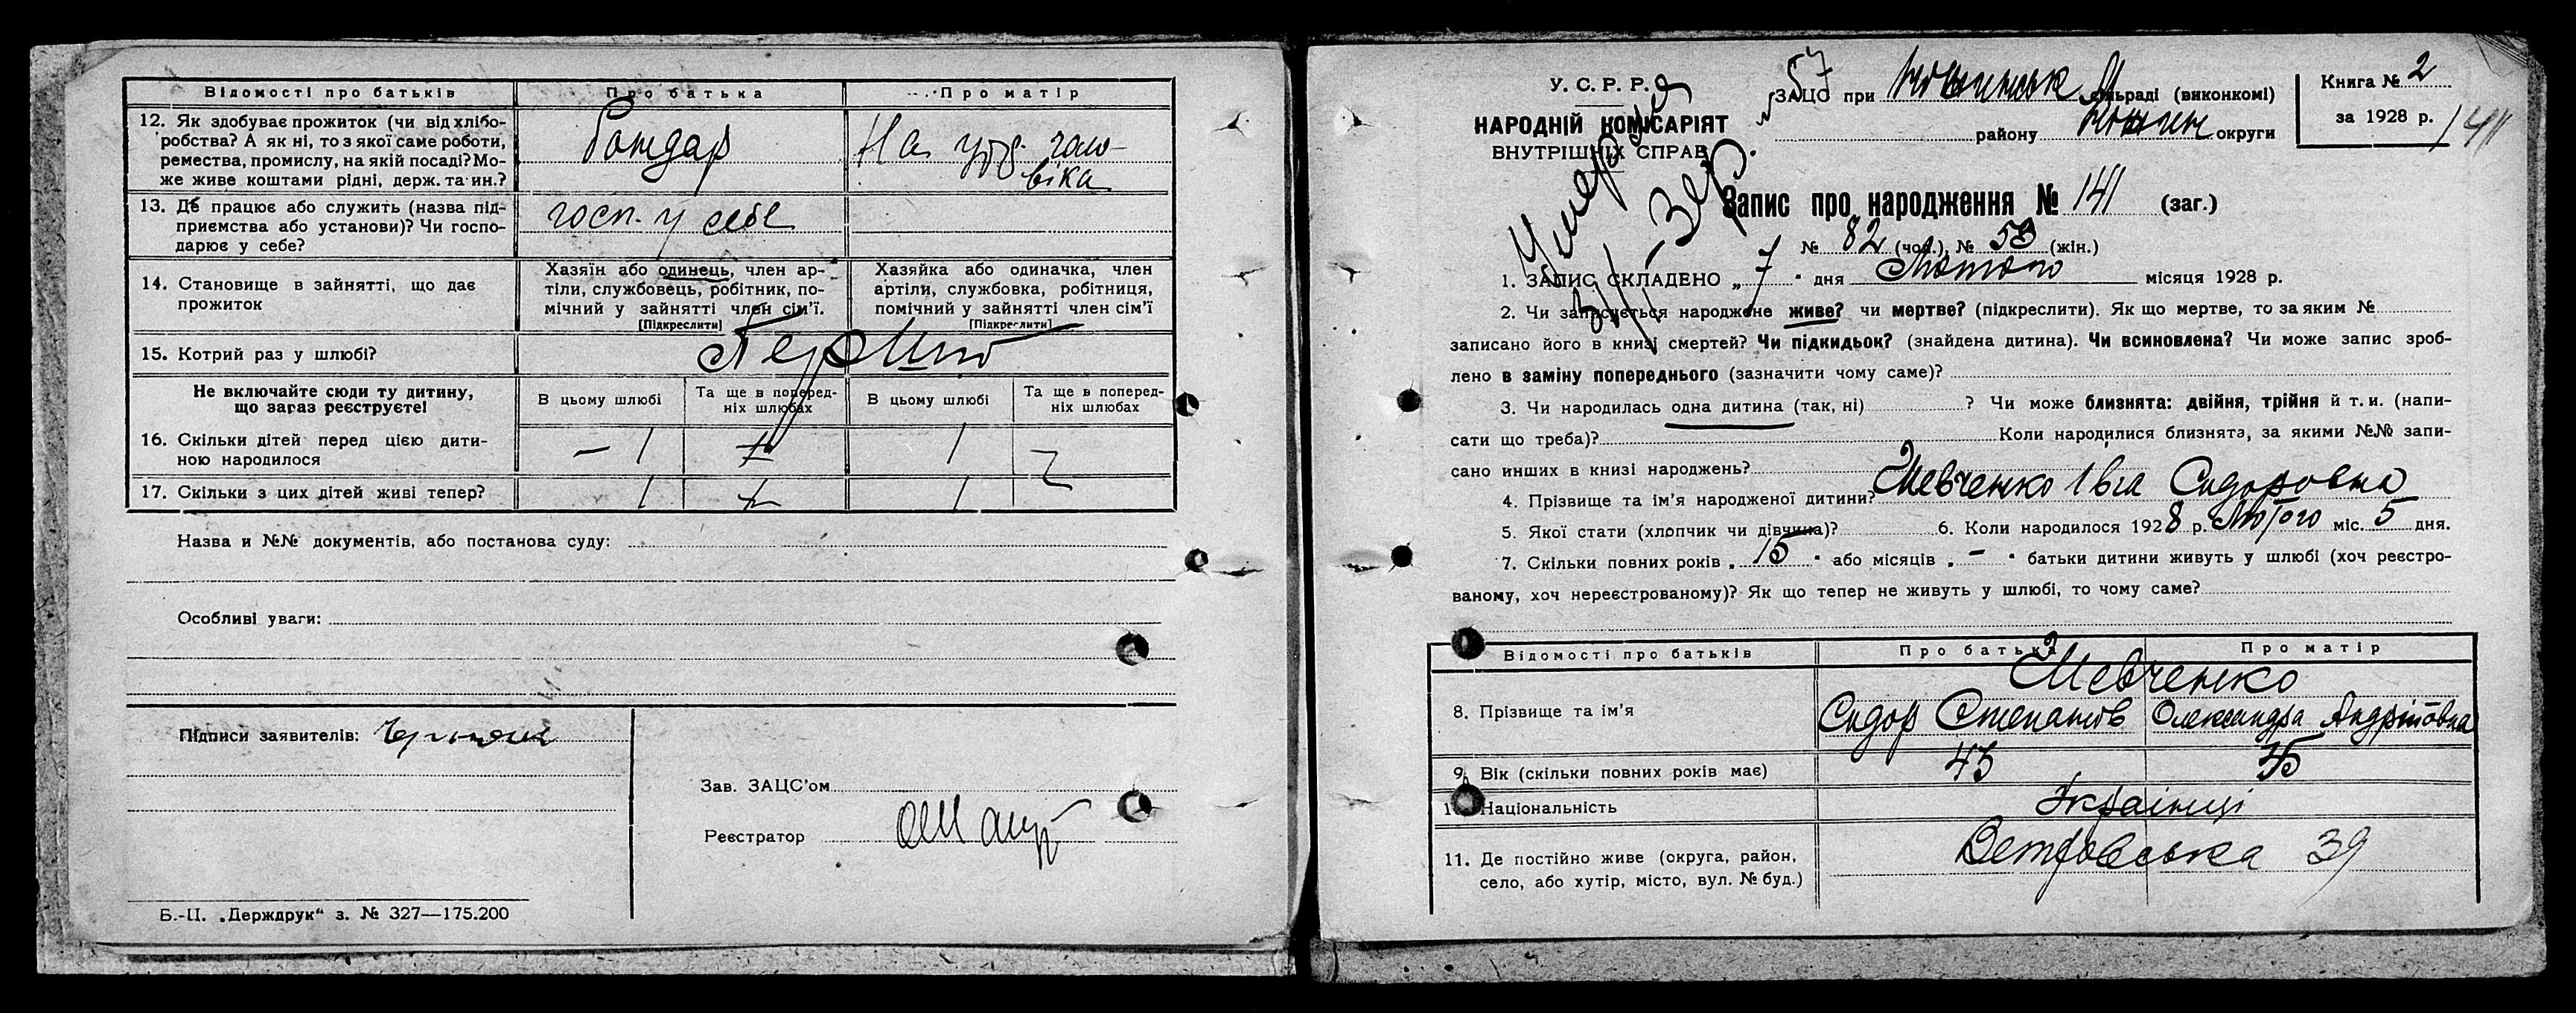 Відомості про батьків
Про батька
Про матір
12. Як здобуває прожиток (чи від хлібо-
робства? А як ні, то з якої саме роботи,
ремества, промислу, на якій посаді? Мо-
же живе коштами рідні, держ. та ин.?
Бондар
На утр. чоло-
віка
13. Де працює або служить (назва під-
приємства або установи)? Чи госпо-
дарює у себе?
госп. у себе
14. Становище в зайнятті, що дає
прожиток
Хазяїн або одинець, член ар-
тіли, службовець, робітник, по-
мічний у зайнятті член сім'ї.
[Підкреслити]
Хазяйка або одиначка, член
артіли, службовка, робітниця,
помічний у зайнятті член сім'ї
[Підкреслити]
15. Котрий раз у шлюбі?
Не включайте сюди ту дитину,
що зараз реєструєте!
В цьому шлюбі
Та ще в поперед-
ніх шлюбах
В цьому шлюбі
Та ще в поперед-
ніх шлюбах
16. Скільки дітей перед цією дити-
ною народилося
– 1
1
17. Скільки з цих дітей живі тепер?
1
1
Назва и №№ документів, або постанова суду:
Особливі уваги:
Підписи заявителів:
Зав. ЗАЦС'ом
Реєстратор
Б.-Ц. „Держдрук“ з. № 327—175.200
У. С. Р. Р.
НАРОДНІЙ КОМІСАРІЯТ
ВНУТРІШНІХ СПРАВ
57
ЗАЦС при сільраді (виконкомі)
району округи
Книга № 2
за 1928 р.
141
Запис про народження № 141 (заг.)
№ 82 (чол.), № 53 (жін.)
1. ЗАПИС СКЛАДЕНО „ 7 “ дня Лютого місяця 1928 р.
2. Чи записується народжене живе? чи мертве? (підкреслити). Як що мертве, то за яким №
записано його в книзі смертей? Чи підкидьок? (знайдена дитина). Чи всиновлена? Чи може запис зроб-
лено в заміну попереднього (зазначити чому саме)?
3. Чи народилась одна дитина (так, ні) ? Чи може близнята: двійня, трійня й т. и. (напи-
сати що треба)? Коли народилися близнята, за якими №№ запи-
сано инших в книзі народжень?
4. Прізвище та ім'я народженої дитини? Шевченко Івга Сидоровна
5. Якої стати (хлопчик чи дівчина)? 6. Коли народилося 1928 р. Лютого міс. 5 дня.
7. Скільки повних років „ 15 “ або місяців „ – “ батьки дитини живуть у шлюбі (хоч реєстро-
ваному, хоч нереєстрованому)? Як що тепер не живуть у шлюбі, то чому саме?
Відомості про батьків
Про батька
Про матір
8. Прізвище та ім'я
Шевченко
Сидор Степанов
Олександра Андріївовна
9. Вік (скільки повних років має)
45
35
10. Національність
Українці
11. Де постійно живе (округа, район,
село, або хутір, місто, вул. № буд.)
Ветровська 39